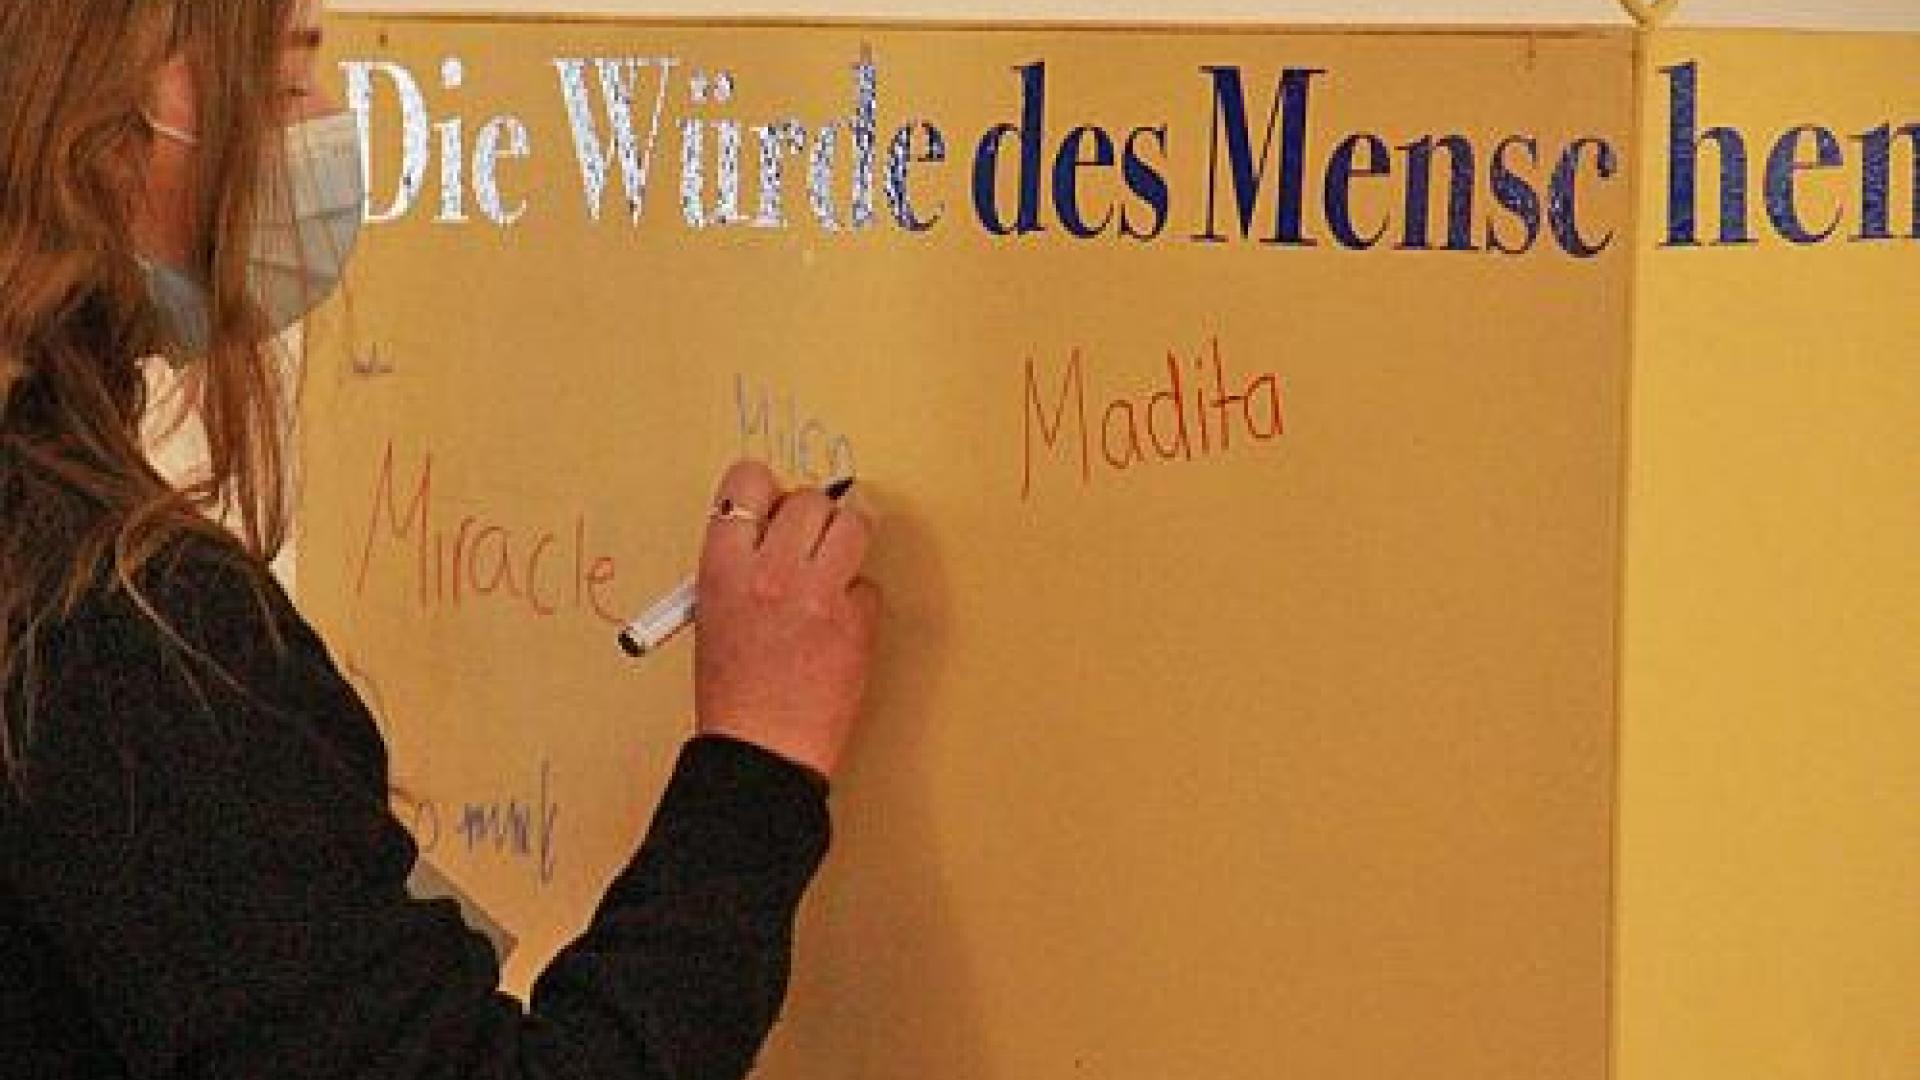 Die Würde des Menschen
Madita
Miracle